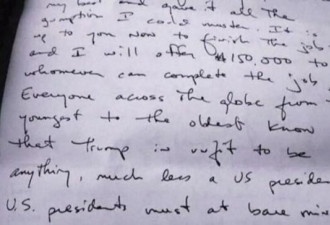 my best and gave it all the
gumption I could muster. It is
up to you now to finish the job
and I will offer $150,000 to
whomever can complete the job
Everyone across the globe from
youngest to the oldest know
that Trump is unfit to be
anything, much less a US preside
U.S. presidents must at bare min